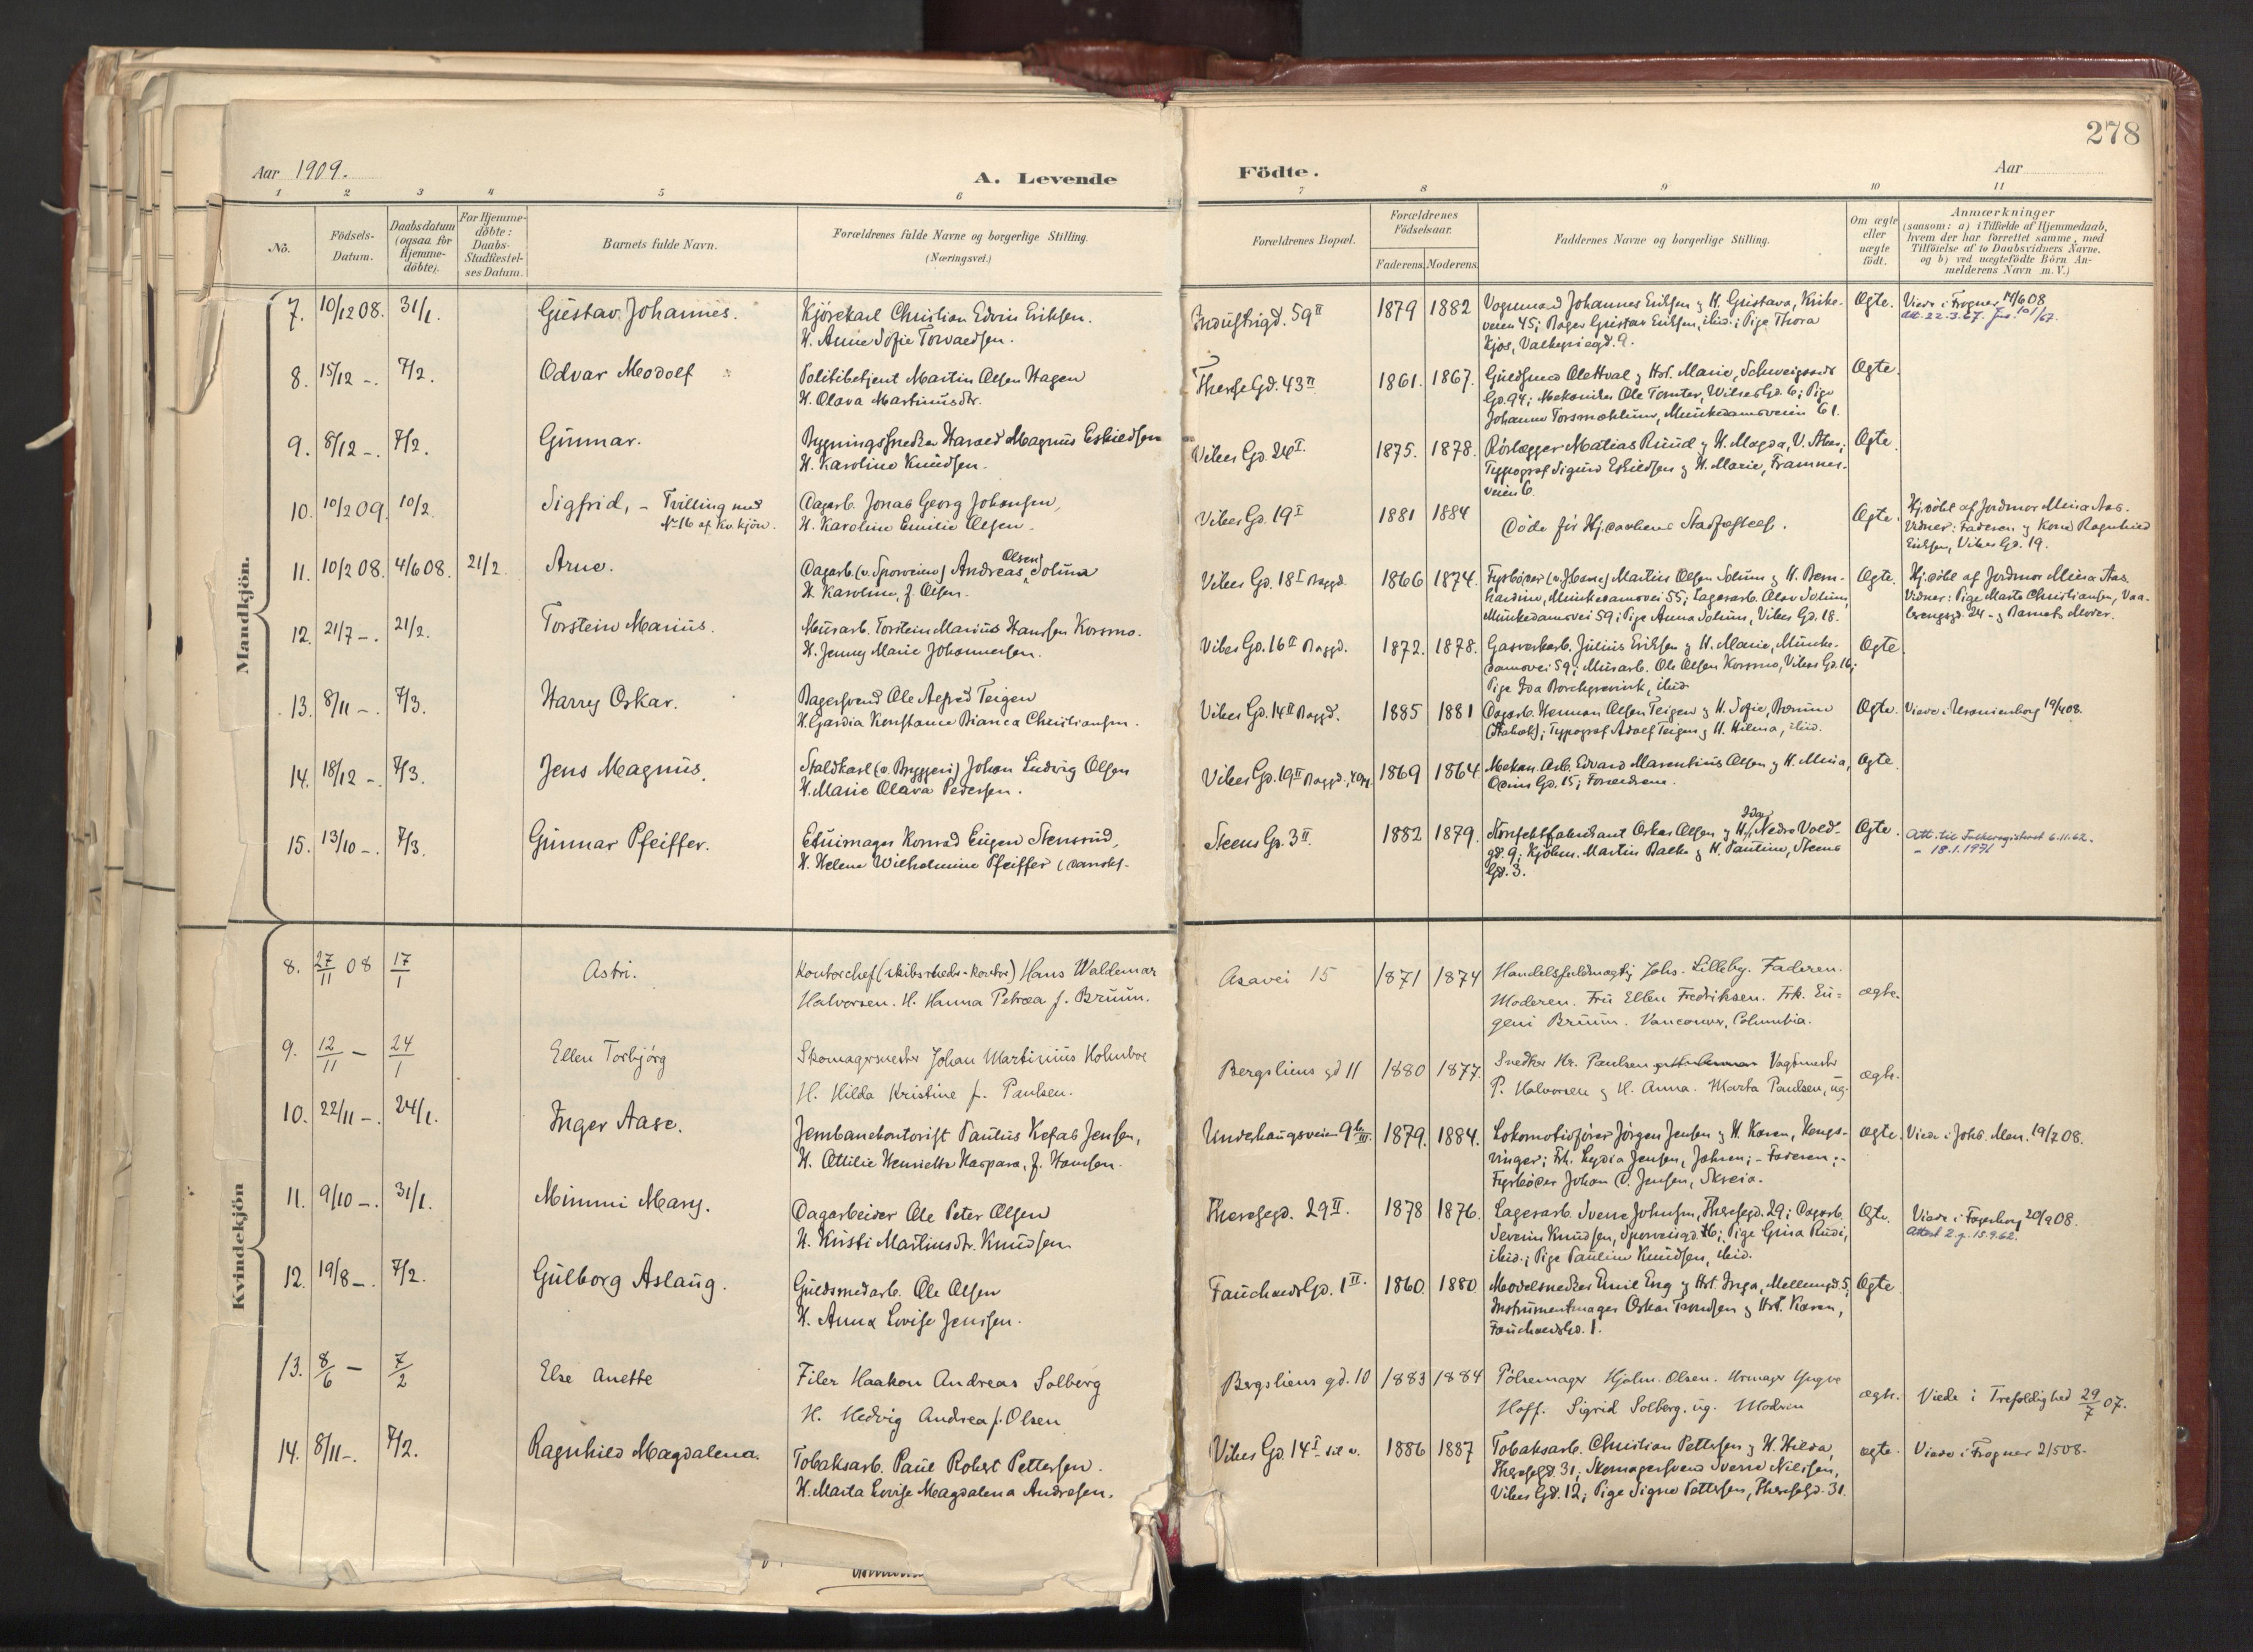 278
Aar 1909.
A. Levende
Födte.
Aar
1 2 3 4 5 6 7 8 9 10 11
No.
Födsels-
Datum.
Daabsdatum
(ogsaa for
Hjemme-
döbte).
For Hjemme-
döbte:
Daabs-
Stadfæstel-
ses Datum.
Barnets fulde Navn.
Forældrenes fulde Navne og borgerlige Stilling.
(Næringsvei.)
Forældrenes Bopæl.
Forældrenes
Födselsaar.
Faderens. Moderens.
Faddernes Navne og borgerlige Stilling.
Om ægte
eller
uægte
födt.
Anmærkninger
(saasom: a) i Tilfælde af Hjemmedaab,
hvem der har forrettet samme, med
Tilföielse af to Daabsvidners Navne.
og b) ved uægtefödte Börn An-
melderens Navn m. V.)
Mandkjön.
7. 10/12 08. 31/1. Gustav Johannes.
Kjørekarl Christian Edvin Eriksen.
H. Anne Sofie Torvaldsen.
Industrigd. 59 II 1879 1882
Vognmand Johannes Eriksen g H. Gustava, Kirke-
veien 45; Bager Gustav Eriksen, ibid.; Pige Thora
Kjos, Valkyriegd. 9.
Ægte. Viede i Frogner 14/6 08
Att. 22.3.67.
8. 15/12 -. 7/2. Odvar Modolf
Politibetjent Martin Olsen Hagen
H. Olava Martinusdtr.
Therese Gd. 43 II 1861. 1867.
Guldsmed Ole Hval g Hst. Marie, Schweigaards
Gd. 94; Mekaniker Ole Tomter, Wilses Gd. 6; Pige
Johanne Torsmæhlum, Munkedamsveien 61.
Ægte.
9. 8/12 -. 7/2. Gunnar.
Bygningssnedker Harald Magnus Eskildsen
H. Karoline Knudsen.
Vibes Gd. 24 I. 1875. 1878.
Rørlægger Matias Ruud g H. Magda, V. Aker;
Typograf Sigurd Eskildsen g H. Marie, Framnes-
veien 6.
Ægte.
10. 10/2 09. 10/2. Sigfrid, - Tvilling med
No 16 af Kv.kjøn.
Dagarb. Jonas Georg Johansen,
H. Karoline Emilie Olsen.
Vibes Gd. 19 I 1881 1884
Døde før Hj.daabens Stadfæstelse.
Ægte. Hj.døbt af Jordmor Mina Aas.
Vidner: Faderen g Kone Ragnhild
Eriksen, Vibes Gd. 19.
11. 10/2 08. 4/6 08. 21/2. Arne.
Dagarb. (v. Sporveien) Andreas Olsen Solum
H. Karoline, f. Olsen.
Vibes Gd. 18 I Baggd. 1866 1874.
Fyrbøder Martin Olsen Solum g H. Bern-
hardine, Munkedamsvei 55; Lagerarb. Olav Solum,
Munkedamsvei 59; Pige Anna Solum, Vibes Gd. 18.
Ægte. Hj.døbt af Jordmor Mina Aas.
Vidner: Pige Marte Christiansen, Vaa-
lerengsgd. 24 - g Barnets Moder.
12. 21/7 -. 21/2. Torstein Marius.
Murarb. Torstein Marius Hansen Korsmo.
H. Jenny Marie Johannesen.
Vibes Gd. 16 II Baggd. 1872. 1878.
Gasverkarb. Julius Eriksen g H. Marie, Munke-
damsvei 59; Murarb. Ole Olsen Korsmo, Vibes Gd. 16;
Pige Ida Borchgrevink, ibid.
Ægte.
13. 8/11 -. 7/3. Harry Oskar.
Bagersvend Ole Alfred Teigen
H. Gardia Konstance Bianca Christiansen.
Vibes Gd. 14 II Baggd. 1885 1881
Dagarb. Herman Olsen Teigen g H. Sofie, Bærum
(Stabæk); Typograf Adolf Teigen g H. Hilma, ibid.
Ægte. Viede i Uranienborg 19/4 08.
14. 18/12 -. 7/3. Jens Magnus.
Staldkarl (v. Bryggeri) Johan Ludvig Olsen
H. Marie Olava Pedersen.
Vibes Gd. 19 II Baggd., 1869 1864.
Mekan. Arb. Edvard Marentius Olsen g H. Mina,
Odins Gd. 15; Forældrene.
Ægte.
15. 13/10 -. 7/3. Gunnar Pfeiffer.
Etuimager Konrad Eugen Stensrud,
H. Helene Wilhelmine Pfeiffer (dansk).
Steens Gd. 3 II. 1882 1879.
Konfektfabrikant Oskar Olsen g H. Ida, Nedre Vold-
gd. 9; Kjøbm. Martin Balke g H. Pauline, Steens
Gd. 3.
Ægte. Att. til Folkeregisteret 6.11.62.
- 18.1.1971
Kvindekjön
8. 27/11 08 17/1 Astri.
Kontorchef (skibsrheder-kontor) Hans Waldemar
Halvorsen. H. Hanna Petrea f. Bruun.
Asavei 15 1871 1874
Handelsfuldmægtig Johs. Lilleby. Faderen.
Moderen. Fru Ellen Fredriksen. Frk. Eu-
geni Bruun. Vancouver, Columbia.
ægte.
9. 12/11 - 24/1 Ellen Torbjørg
Skomagermester Johan Martinius Holmboe
H. Hilda Kristine f. Paulsen.
Bergsliens gd 11 1880 1877.
Snedker Hr. Paulsen Vagtmester
P. Halvorsen g H. Anna. Marta Paulsen, ug.
ægte.
10. 22/11 -. 24/1. Inger Aase.
Jernbanekontorist Paulus Kefas Jensen,
H. Ottilie Henriette Kaspara, f. Hansen.
Underhaugsveien 9 b III 1879. 1884.
Lokomotivfører Jørgen Jensen g H. Karen, Kongs-
vinger; Frk. Lydia Jensen, Jahren; - Faderen; -
Fyrbøder Johan O. Jensen, Skreia.
ægte. Viede i Johs. Men. 19/7 08.
11. 9/10 -. 31/1. Mimmi Mary.
Dagarbeider Ole Peter Olsen
H. Kristi Martinsdtr. Knudsen
Theresegd. 29 II. 1878 1876.
Lagerarb. Svene Johnsen, Theresegd. 29; Dagarb.
Severin Knudsen, Sporveisgd. 16; Pige Gina Rudi,
ibid.; Pige Pauline Knudsen, ibid.
Ægte. Viede i Fagerborg 20/9 08.
Attest 2 g. 15.9.62.
12. 19/8 -. 7/2. Gulborg Aslaug.
Guldsmedarb. Ole Olsen
H. Anna Lovise Jensen.
Fauchalds Gd. 1 II. 1860. 1880
Modelsnedker Emil Eng g Hst. Inga, Møllergd. 5,
Instrumentmager Oskar Trondsen g Hst. Karen,
Fauchalds Gd. 1.
Ægte
13. 8/6 - 7/2 Else Anette
Filer Haakon Andreas Solberg
H. Hedvig Andrea f. Olsen
Bergsliens gd. 10 1883 1884
Pølsemager Hjalm. Olsen. Urmager Yngve
Hoff. Sigrid Solberg. ug. Moderen
ægte. Viede i Trefoldighed 29/7 07.
14. 8/11 -. 7/2. Ragnhild Magdalena.
Tobaksarb. Paul Robert Pettersen.
H. Marta Lovise Magdalena Andresen.
Vibes Gd. 14 I til v. 1886 1887
Tobaksarb. Christian Pettersen g H. Hilda,
Theresegd. 31; Skomagersvend Sverre Nilssen,
Vibes Gd. 12; Pige Signe Pettersen, Theresegd. 31.
ægte. Viede i Frogner 2/5 08.